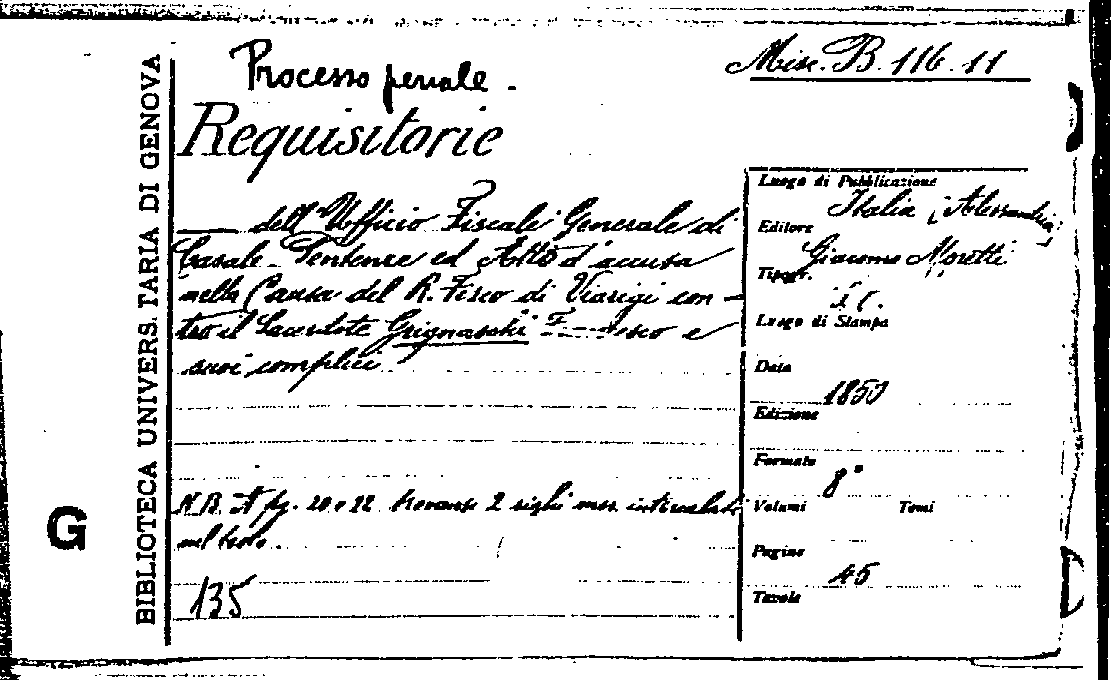 BIBLIOTECA UNIVERS.TARIA DI GENOVA
G
Processo penale.
Misc. B. 116. 11
Requisitorie
dell'Ufficio Fiscale Generale di
Casale - Sentenze ed Atto d'accusa
nella Causa del R. Fisco di Viarigi con-
tro il Sacerdote Grignaschi e
suoi complici
N.B. A pg. 20 e 22 trovansi 2 intercalati
nel testo.
135
Luogo di Pubblicazione
Italia, Alessandria
Editore
Giacomo Moretti
Tipogr.
Luogo di Stampa
Data
1850
Edizione
Formato
8°
Volumi Tomi
Pagine
45
Tavole